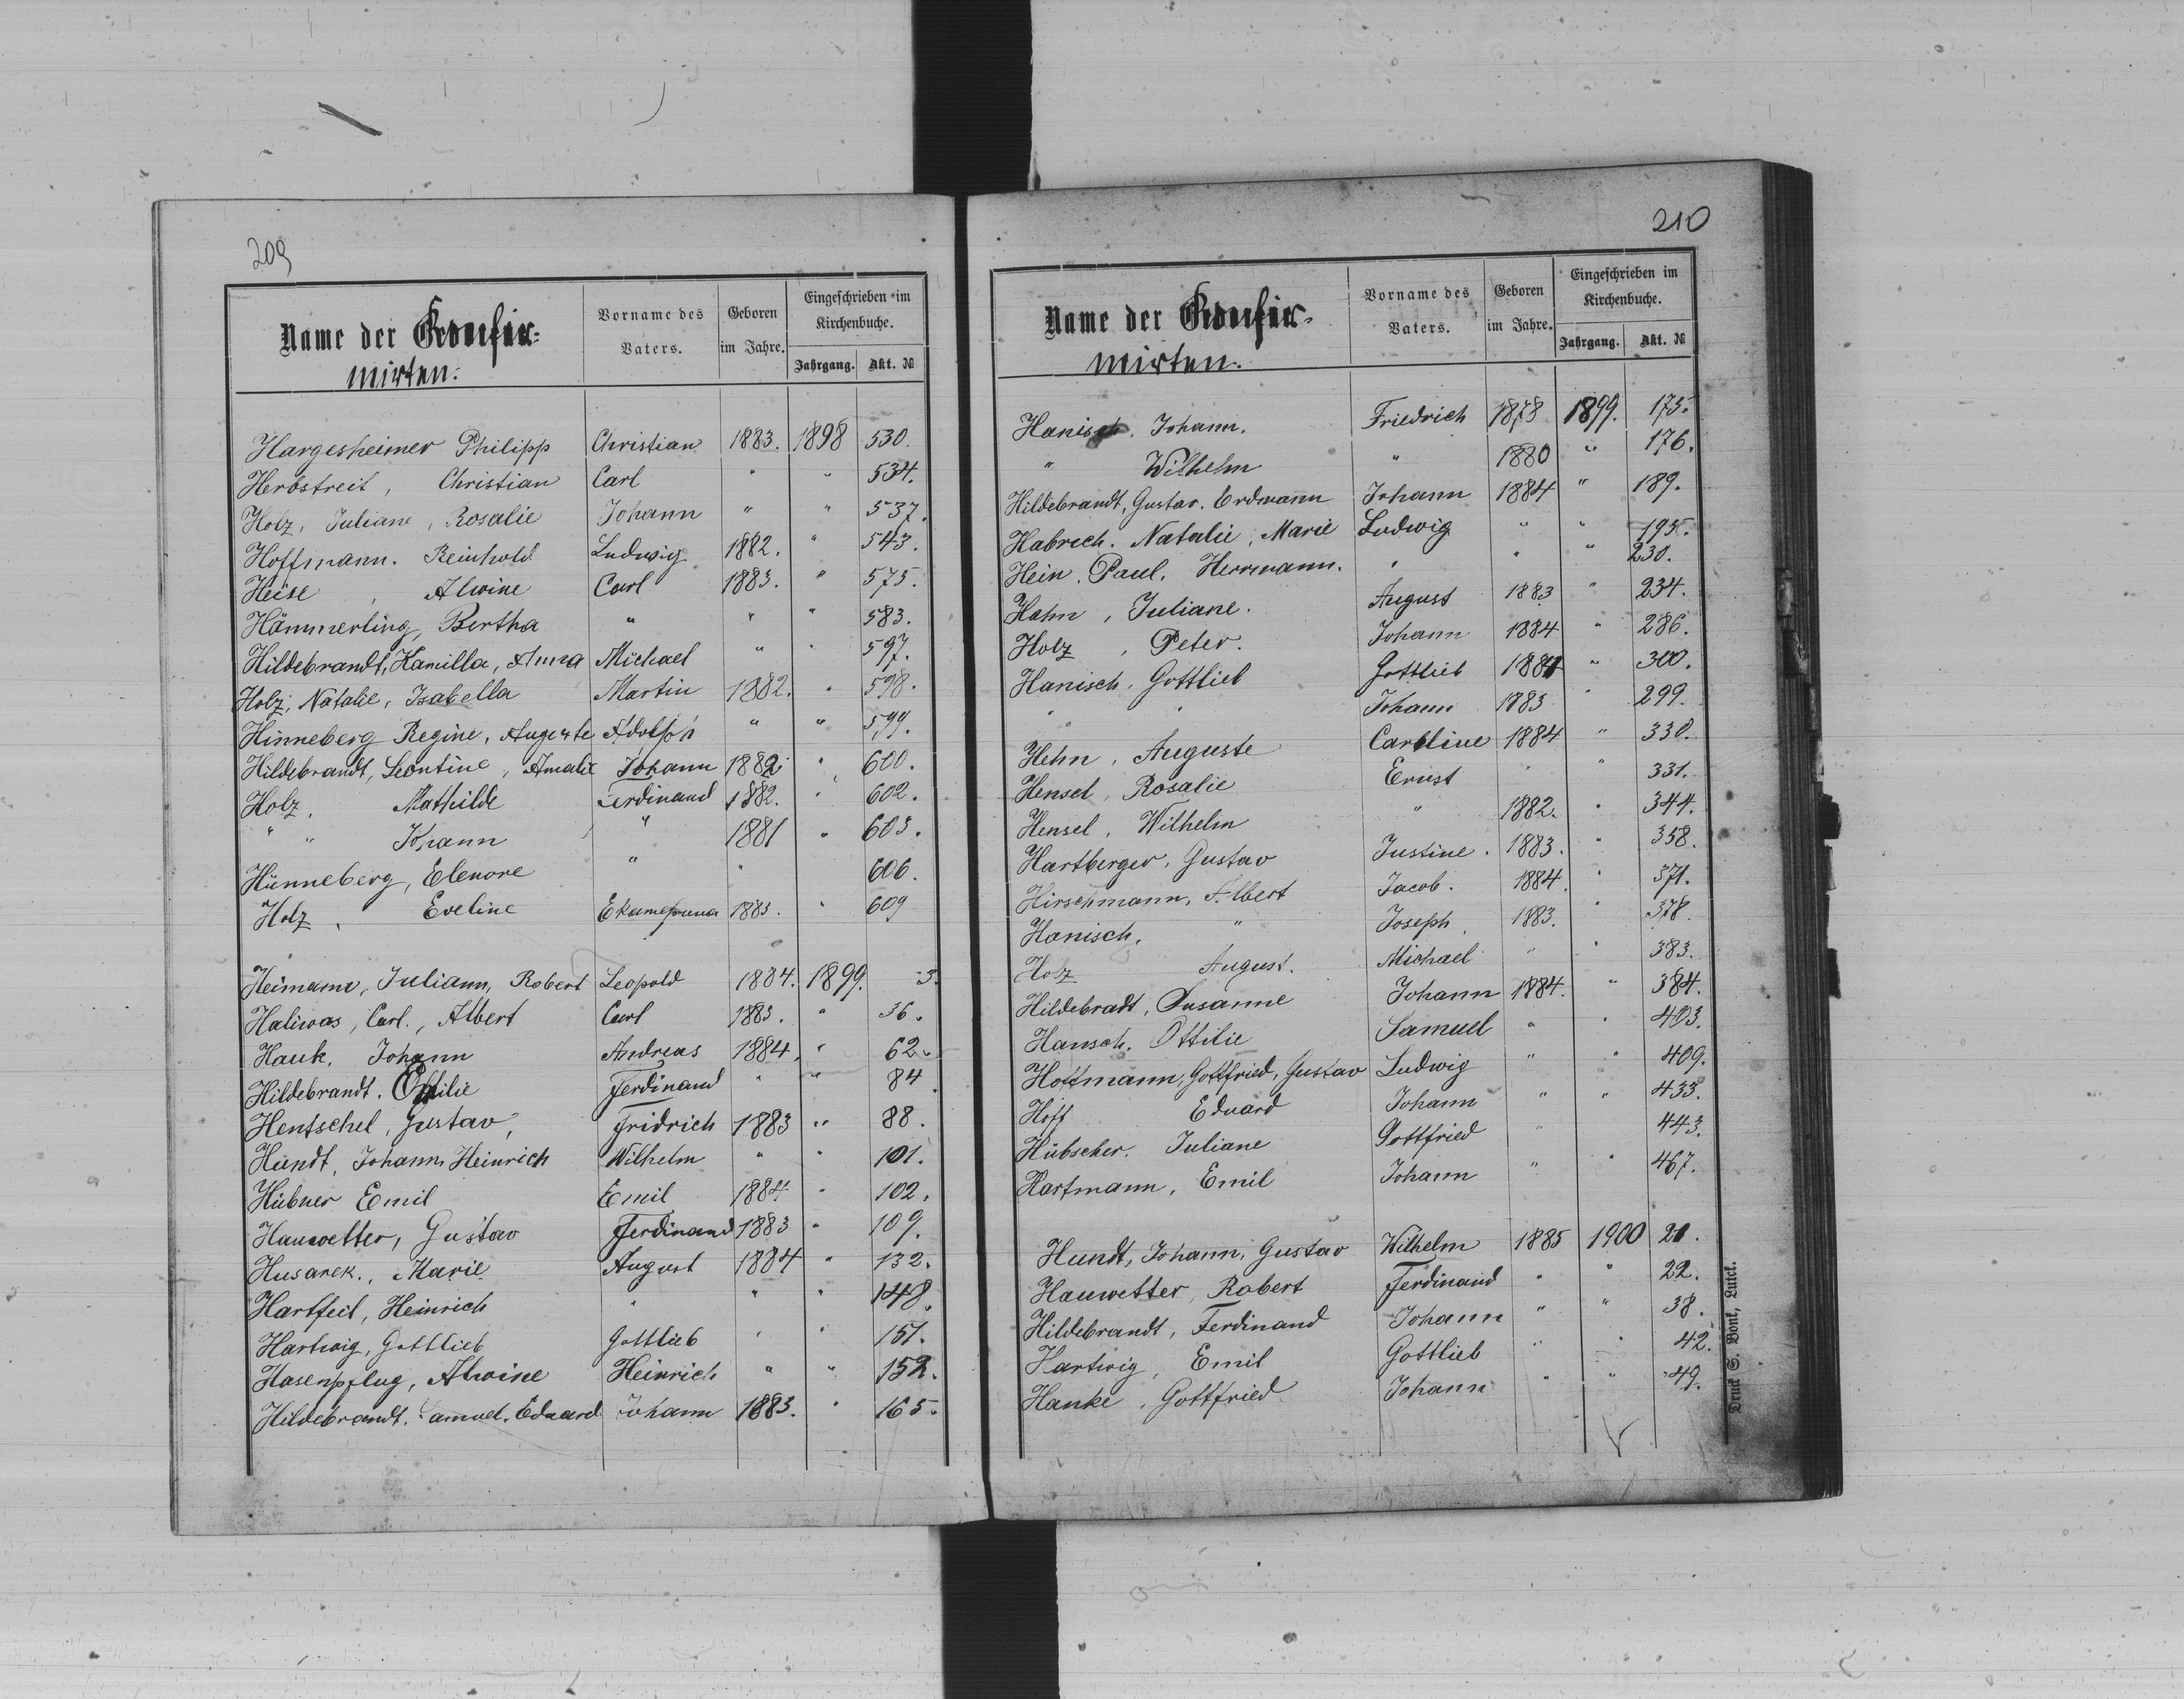 209
Name der Konfir-
mirten.
Vorname des
Vaters.
Geboren
im Jahre.
Eingeschrieben im
Kirchenbuche.
Jahrgang. Akt. №
Hargesheimer Philipp Christian 1883. 1898 530.
Herbstreit, Christian Carl " " 534.
Holz, Juliane, Rosalie Johann " " 537.
Hoffmann. Reinhold Ludwig 1882. " 543.
Heise, Alwine Carl 1883. " 575.
Hämmerling, Bertha " " " 583.
Hildebrandt, Kamilla, Anna Michael " " 597.
Holz, Natalie, Isabella Martin 1882. " 598.
Hinneberg Regine, Auguste Adolph " " 599.
Hildebrandt, Leontine, Amalie Johann 1882. " 600.
Holz, Mathilde Ferdinand 1882. " 602.
" " Johann " 1881 " 603.
Hünneberg, Elenore " " 606.
Holz, Eveline 1883. " 609
Heimann, Juliann, Robert Leopold 1884. 1899. 3.
Haliwas, Carl., Albert Carl 1883. " 36.
Hauk, Johann Andreas 1884, " 62.
Hildebrandt. Ottilie Ferdinand " " 84.
Hentschel, Gustav, Fridrich 1883 " 88.
Hundt, Johann Heinrich Wilhelm " " 101.
Hübner Emil Emil 1884 " 102.
Hauwetter, Gustav Ferdinand 1883 " 109.
Husarek., Marie August 1884 " 132.
Hartfeil, Heinrich " " " 148.
Hartwig, Gottlieb Gottlieb " " 151.
Hasenpflug, Alwine Heinrich " " 152.
Hildebrandt. Samuel. Eduard Johann 1883. " 165.
210
Name der Konfir-
mirten.
Vorname des
Vaters.
Geboren
im Jahre.
Eingeschrieben im
Kirchenbuche.
Jahrgang. Akt. №
Hanisch, Johann. Friedrich 1878 1899. 175.
" Wilhelm " 1880 " 176.
Hildebrandt, Gustav. Erdmann Johann 1884 " 189.
Habrech. Natalie, Marie Ludwig " " 195.
Hein, Paul, Herrmann. " " " 230.
Hahn, Juliane. August 1883 " 234.
Holz, Peter. Johann 1884 " 286.
Hanisch, Gottlieb Gottlieb 1884 " 300.
" " Johann 1883 " 299.
Hehn, Auguste Caroline 1884 " 330.
Hensel, Rosalie Ernst " " 331.
Hensel, Wilhelm " 1882. " 344.
Hartberger, Gustav Justine. 1883. " 358.
Hirschmann, Albert Jacob. 1884. " 371.
Hanisch, " Joseph. 1883. " 378.
Holz August. Michael " " 383.
Hildebradt, Susanne Johann 1884. " 384.
Hansch. Ottilie Samuel " " 403.
Hoffmann, Gottfried, Gustav Ludwig " " 409.
Hoff Eduard Johann " " 433.
Hübscher. Juliane Gottfried " 443.
Hartmann, Emil Johann " " 467.
Hundt, Johann, Gustav Wilhelm 1885 1900 21.
Hauwetter, Robert Ferdinand " " 22.
Hildebrandt, Ferdinand Johann " " 38.
Hartwig, Emil Gottlieb " " 42.
Hanke, Gottfried Johann " " 49.
Druck S. Bonk, Lutck.